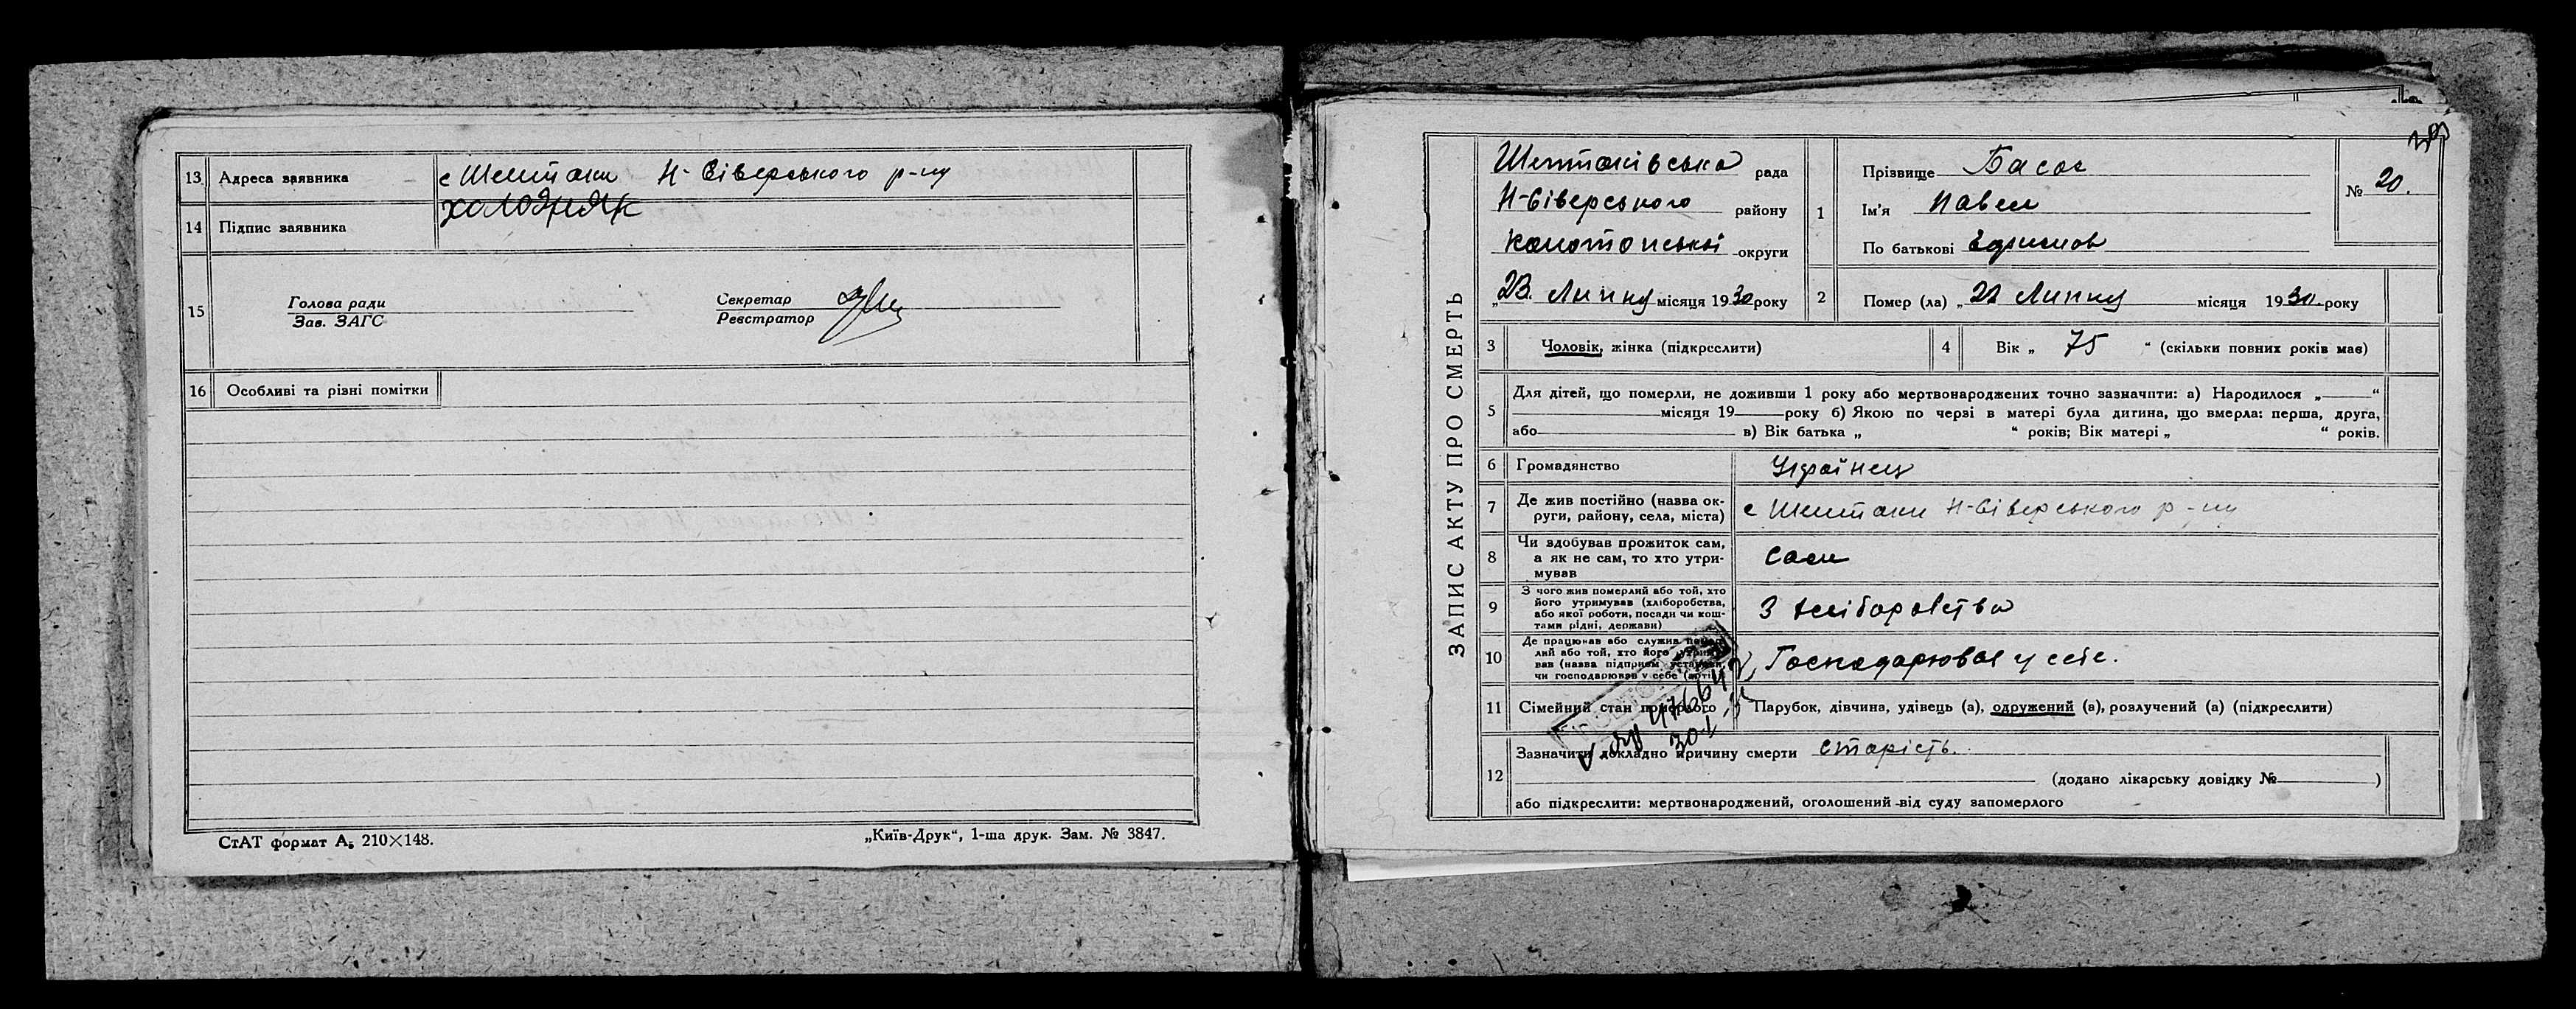 13 Адреса заявника с Шептаки Н-Сіверського р-ну
14 Підпис заявника Холодняк
15 Голова ради
Зав. ЗАГС
Секретар
Реєстратор
16 Особливі та різні помітки
СтАТ формат А5 210×148.
„Київ-Друк“, 1-ша друк. Зам. № 3847.
ЗАПИС АКТУ ПРО СМЕРТЬ
Шептаківська рада
Н-Сіверського району
Конотопської округи
„23. Липня місяця 1930 року
1 Прізвище Басок
Ім'я Павел
По батькові
№ 20.
2 Помер (ла) „22 Липня місяця 1930 року
3 Чоловік, жінка (підкреслити)
4 Вік „ 75 “ (скільки повних років мав)
5 Для дітей, що померли, не доживши 1 року або мертвонароджених точно зазначити: а) Народилося „ “
місяця 19 року б) Якою по черзі в матері була дитина, що вмерла: перша, друга,
або в) Вік батька „ “ років; Вік матері „ “ років.
6 Громадянство Українец
7 Де жив постійно (назва ок-
руги, району, села, міста) с Шептаки Н-Сіверського р-ну
8 Чи здобував прожиток сам,
а як не сам, то хто утри-
мував сам
9 З чого жив померлий або той, хто
його утримував (хліборобства,
або якої роботи, посади чи кош-
тами рідні, держави) З хліборобства
10 Де працював або служив
лий або той, хто його
вав (назва
чи господарював у себе Господарював у себе.
11 Сімейний стан померлого Парубок, дівчина, удівець (а), одружений (а), розлучений (а) (підкреслити)
12 Зазначити докладно причину смерти старість.
(додано лікарську довідку № )
або підкреслити: мертвонароджений, оголошений від суду запомерлого